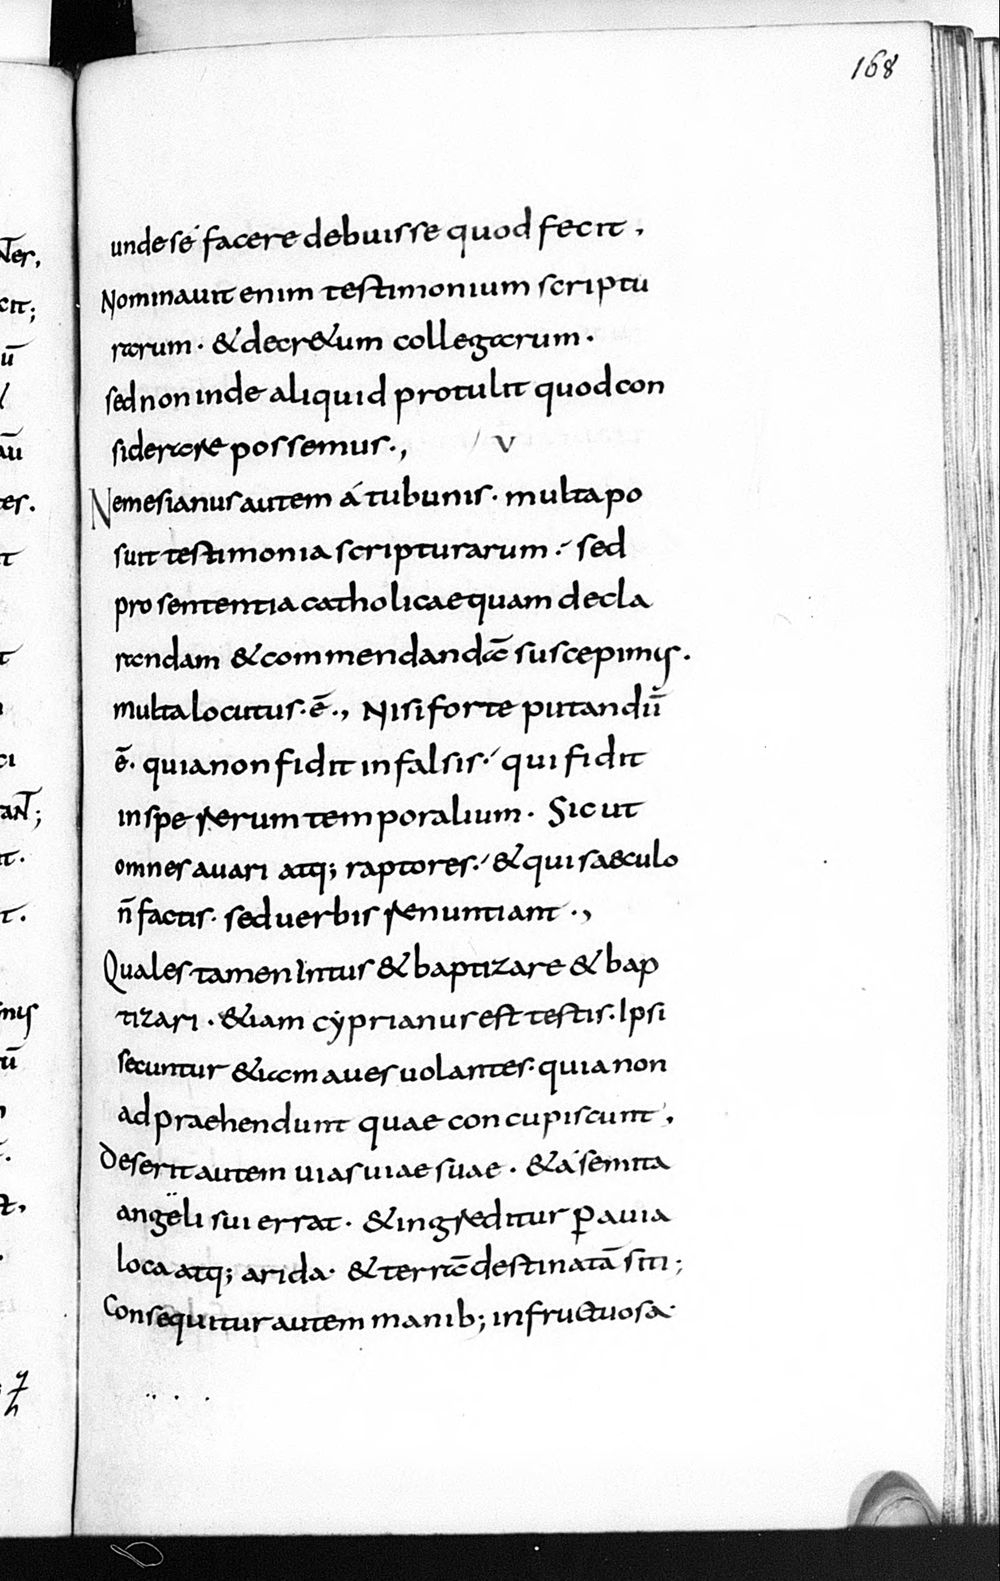 168
unde se facere debuisse quod fecit,
Nominauit enim testimonium scriptu
rarum · & decr&um collegarum ·
sed non inde aliquid protulit quod con
siderare possemus ·, V
Nemesianus autem á tubunis · multa po
suit testimonia scripturarum ·′ sed
pro sententia catholicae quam decla
randam & commendandā suscepimus ·
multa locutus · ē ·, Nisi forte putandū
ē · quia non fidit in falsis ·′ qui fidit
in spe rerum temporalium · Sicut
omnes auari atq; raptores ·′ & qui saeculo
n̄ factis · sed uerbis renuntiant ·,
Quales tamen intus & baptizare & bap
tizari · &iam cyprianus est testis · Ipsi
secuntur &iam aues uolantes · quia non
adpraehendunt quae concupiscunt,
Deserit autem uias uiae suae · & á semita
angeli sui errat · & ingreditur p̱ auia
loca atq; arida · & terrā destinatā siti;
Consequitur autem manib; infructuosa ·